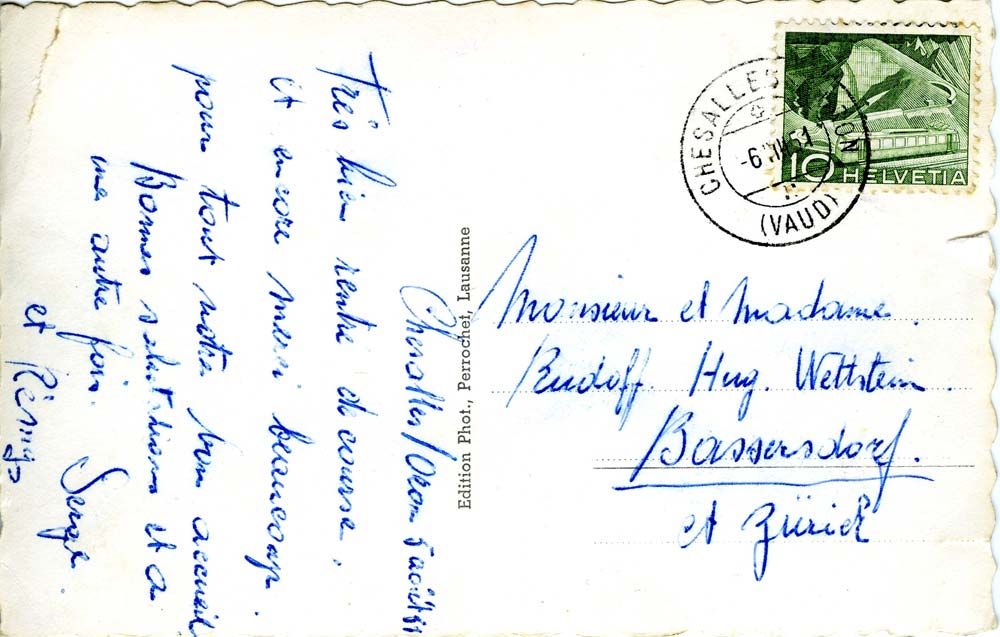 Chesalles/Oron 5 août 51
Très bien rentré de course,
et encore merci beaucoup
pour tout votre bon accueil
Bonnes salutations et a
une autre fois. Serge.
et Rémy
Edition Phot., Perrochet, Lausanne
CHESALLES ORON
-6.VIII.51
(VAUD)
10 HELVETIA
Monsieur et Madame.
Rudolf. Hug. Wettstein.
Bassersdorf.
et Zürich